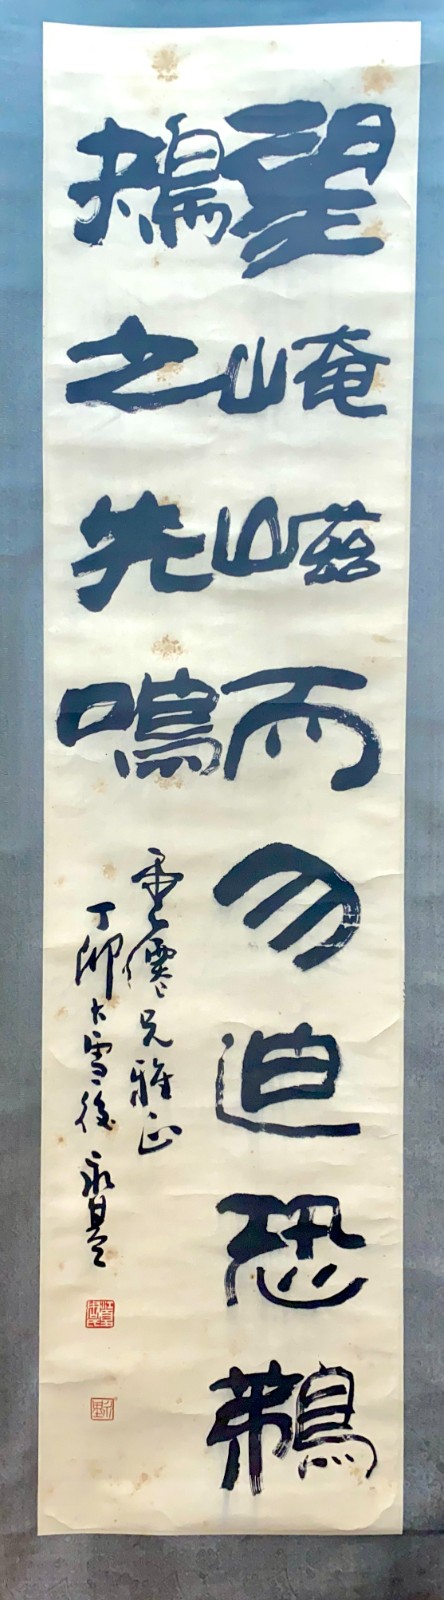 望崦嵫而勿迫恐鵜
鴂之先鳴
兄雅正
丁卯大雪後永